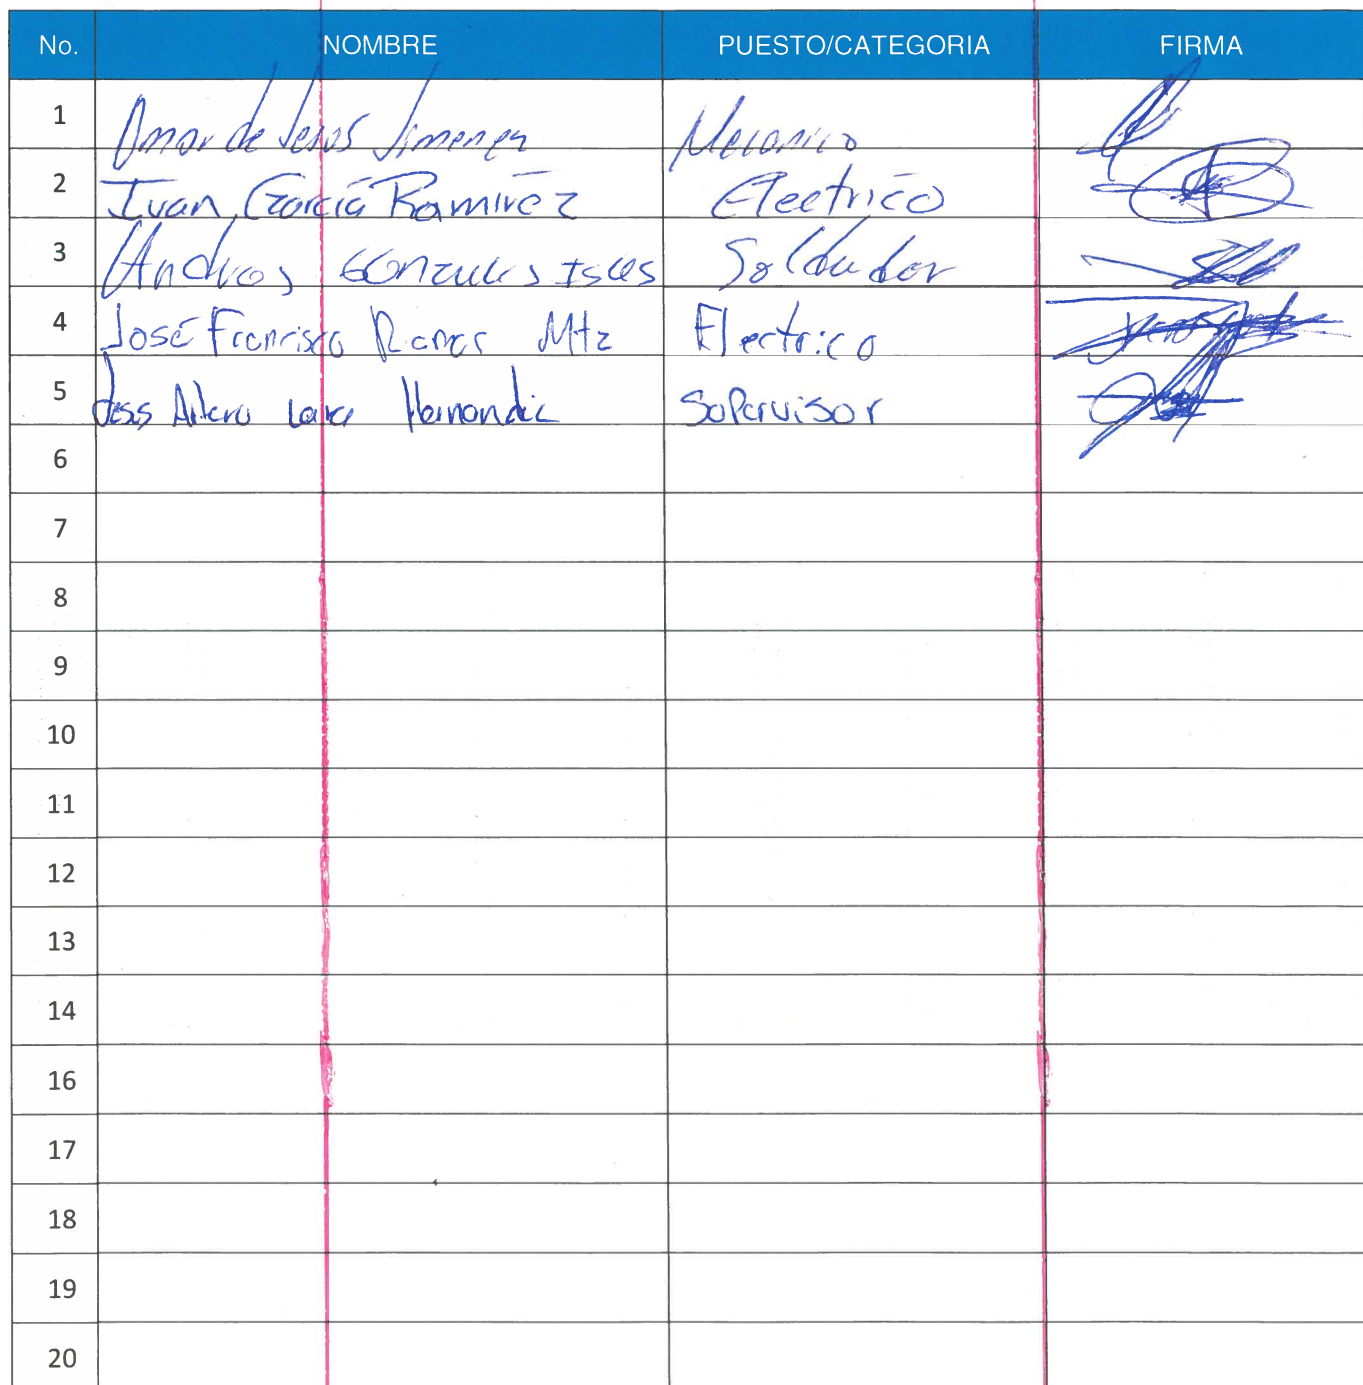 No. NOMBRE PUESTO/CATEGORIA FIRMA
1 Omar de Jesús Jimenez Mecanico
2 Ivan García Ramírez Electrico
3 Andres Gonzales Islas Soldador
4 José Francisco Ramos Mtz Electrico
5 Jess Arturo Lara Hernandez Supervisor
6
7
8
9
10
11
12
13
14
16
17
18
19
20